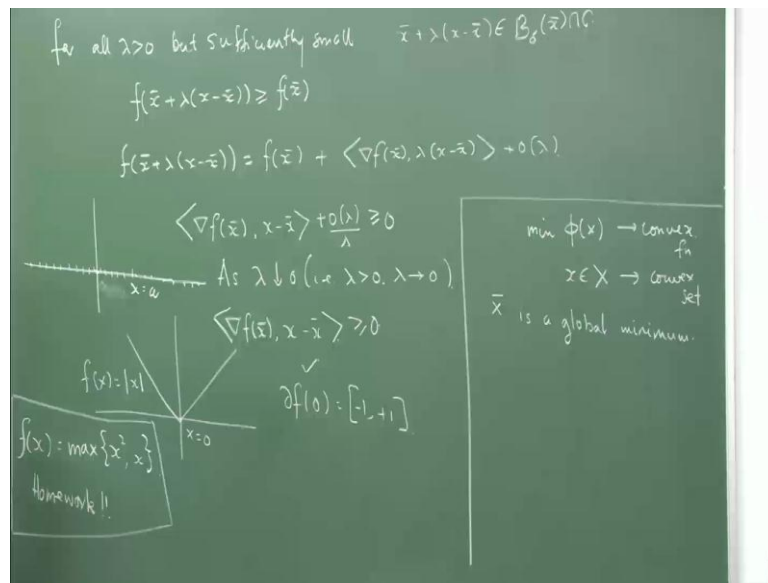 for all λ>0 but sufficiently small x̄+λ(x-x̄)∈ B_δ(x̄)∩C
f(x̄+λ(x-x̄)) ≥ f(x̄)
f(x̄+λ(x-x̄)) = f(x̄) + ⟨∇f(x̄), λ(x-x̄)⟩ + o(λ)
⟨∇f(x̄), x-x̄⟩ + o(λ)/λ ≥ 0
As λ↓0 (i.e λ>0, λ→0)
x=a
⟨∇f(x̄), x-x̄⟩ ≥ 0
✓
f(x)=|x|
∂f(0) = [-1, +1]
x=0
f(x) = max{x², x}
Homework!!
min φ(x) → convex
fn
x∈X → convex
set
x̄ is a global minimum.